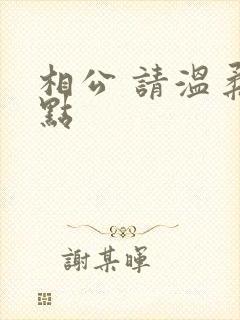 相公 請溫柔
點
謝某暉